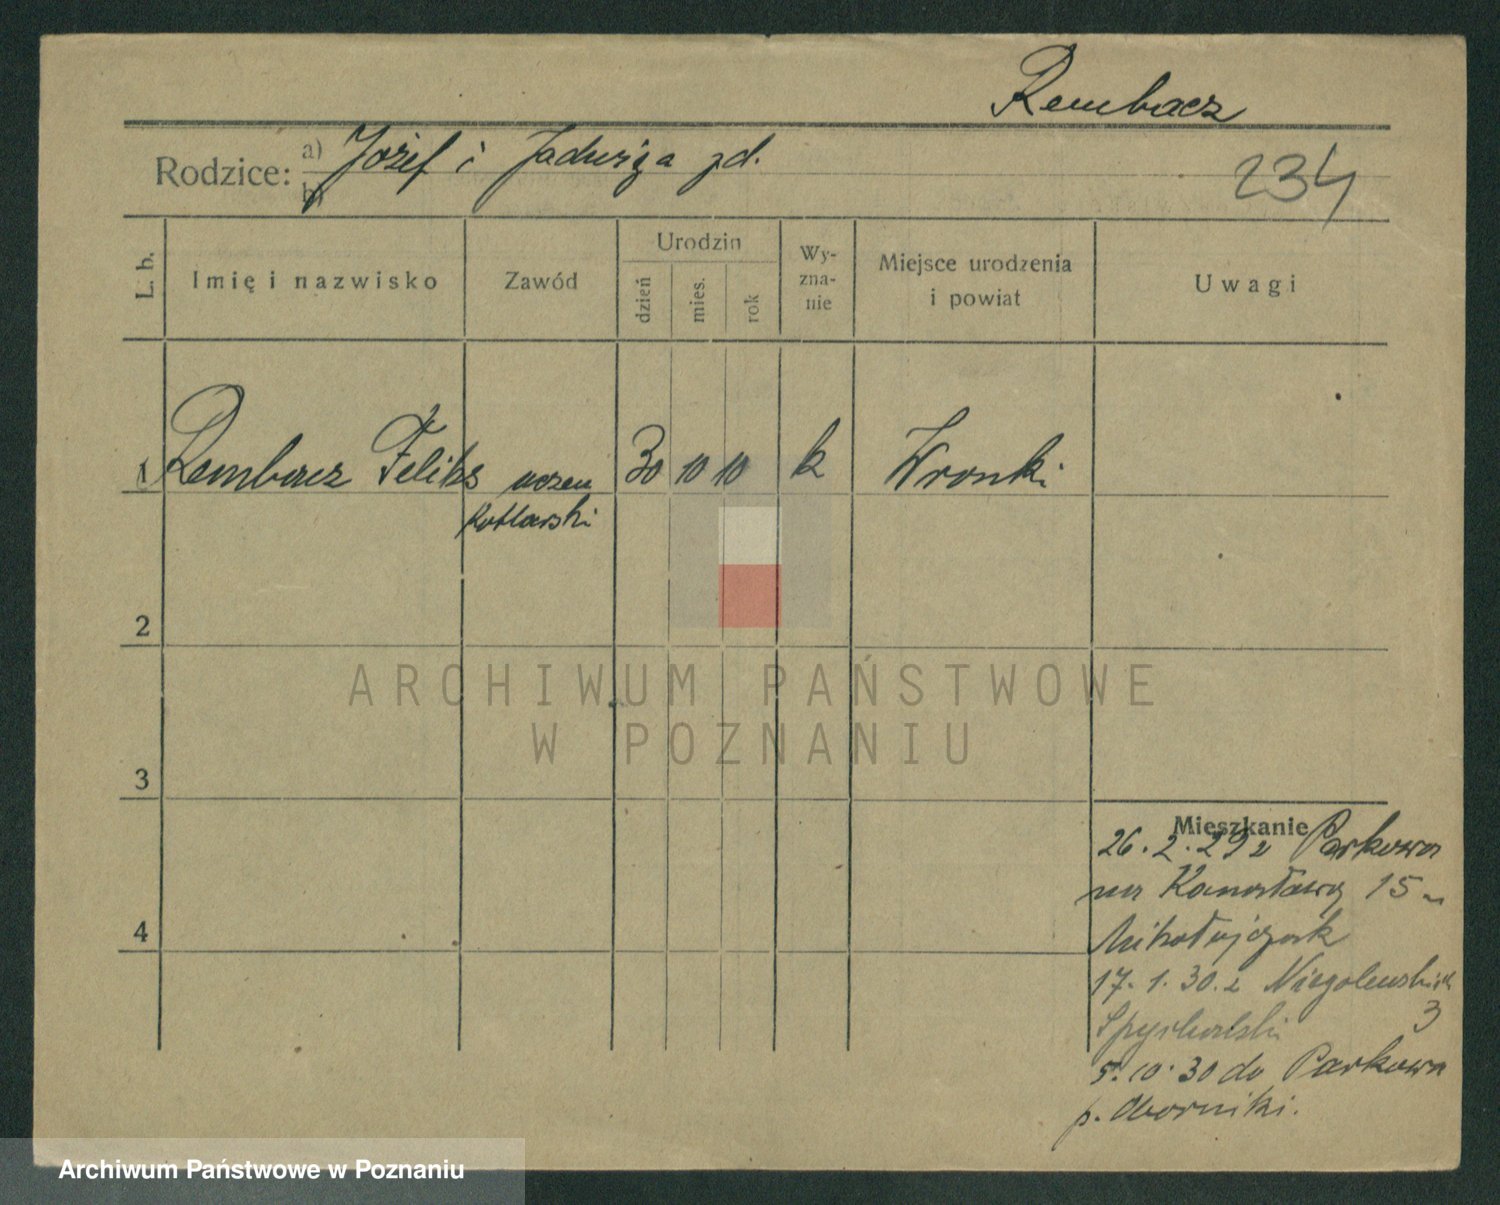 Rembacz
Rodzice: a) Józef i Jadwiga zd.
b)
234
L. b.
Imię i nazwisko
Zawód
Urodzin
dzień
mies.
rok
Wy-
zna-
nie
Miejsce urodzenia
i powiat
Uwagi
1 Rembacz Feliks uczeń 30 10 10 k Wronki
kotlarski
2
ARCHIWUM PAŃSTWOWE
W POZNANIU
3
Mieszkanie
26.2.29 z Parkowa
na 15
Mikołajczak
17.1.30. z Niegolewskich
3
Spychalski
5.10.30 do Parkowa
p. Oborniki.
4
Archiwum Państwowe w Poznaniu